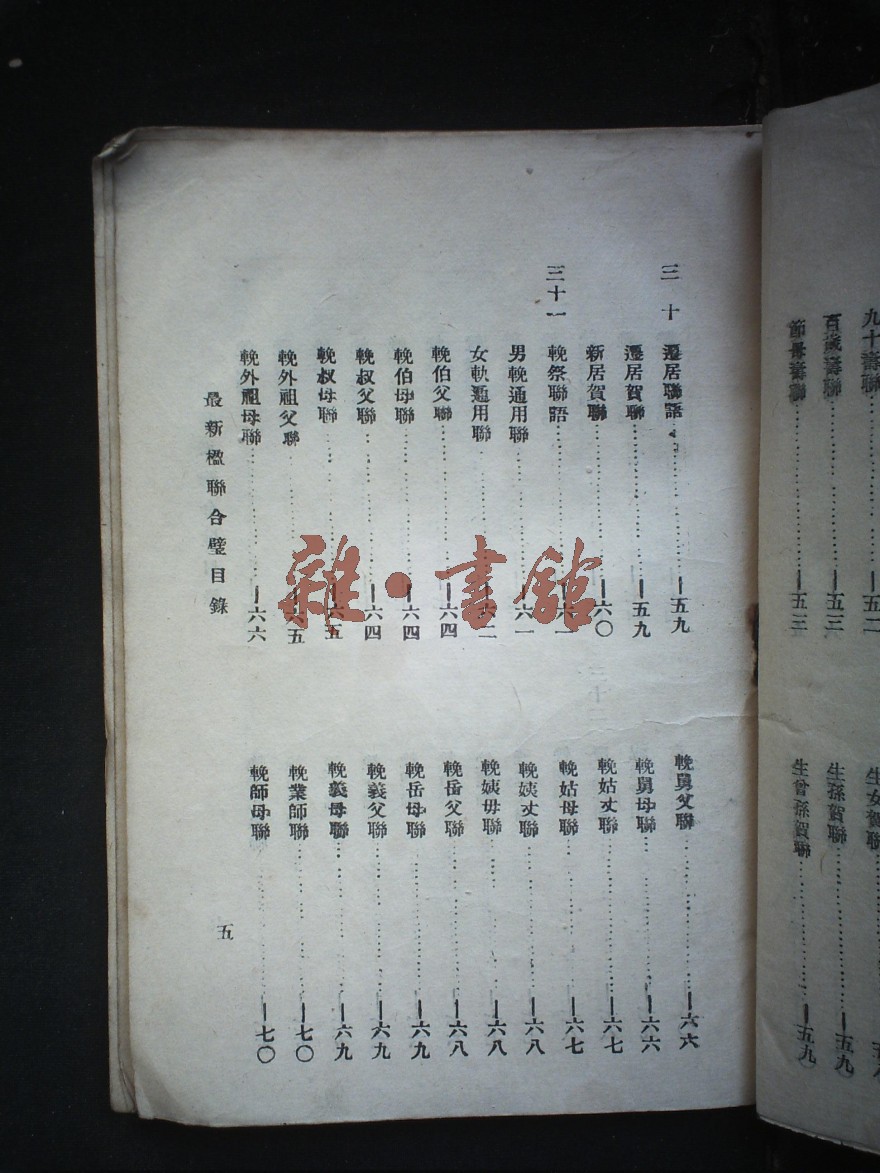 九十壽聯……五二
百歲壽聯……一五三
節母壽聯……一五三
生女賀聯
生孫賀聯……一五九
生曾孫賀聯……一五九
三十 遷居聯語……一五九
遷居賀聯……一五九
新居賀聯……一六〇
三十一 輓祭聯語……一六一
男輓通用聯……一六一
女軟通用聯……一六二
輓伯父聯……一六四
輓伯母聯……一六四
輓叔父聯……一六四
輓叔母聯……一六五
輓外祖父聯……一六五
輓外祖母聯……一六六
輓舅父聯……一六六
輓舅母聯……一六六
輓姑丈聯……一六七
輓姑母聯……一六七
輓姨丈聯……一六八
輓姨母聯……一六八
輓岳父聯……一六八
輓岳母聯……一六九
輓義父聯……一六九
輓義母聯……一六九
輓業師聯……一七〇
輓師母聯……一七〇
最新楹聯合璧目錄
五
雜·書館